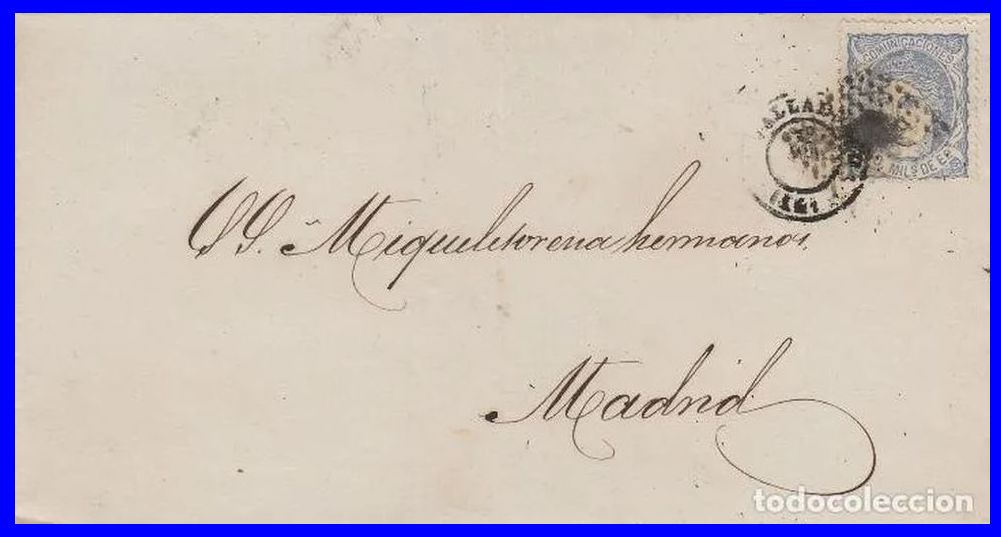 COMUNICACIONES
MILS DE E
VALLAD
SS. Miqueletorena hermanos.
Madrid
todocoleccion